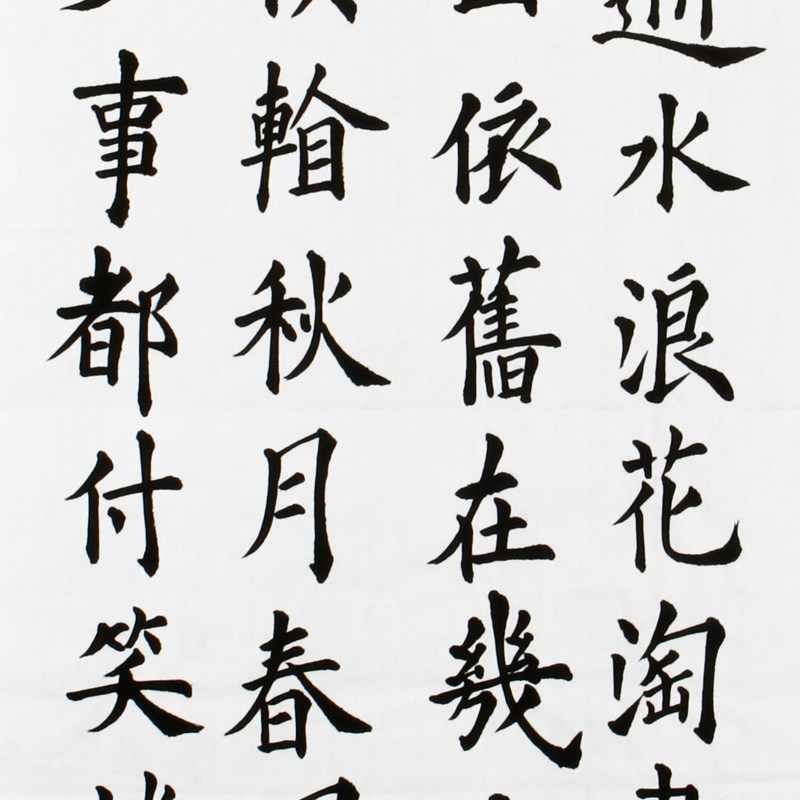 逝水浪花淘
依舊在幾
看秋月春
事都付笑